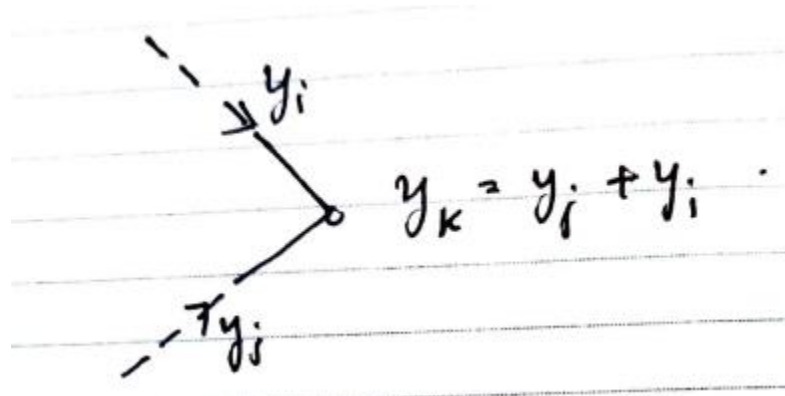 y_i
y_k = y_j + y_i
y_j